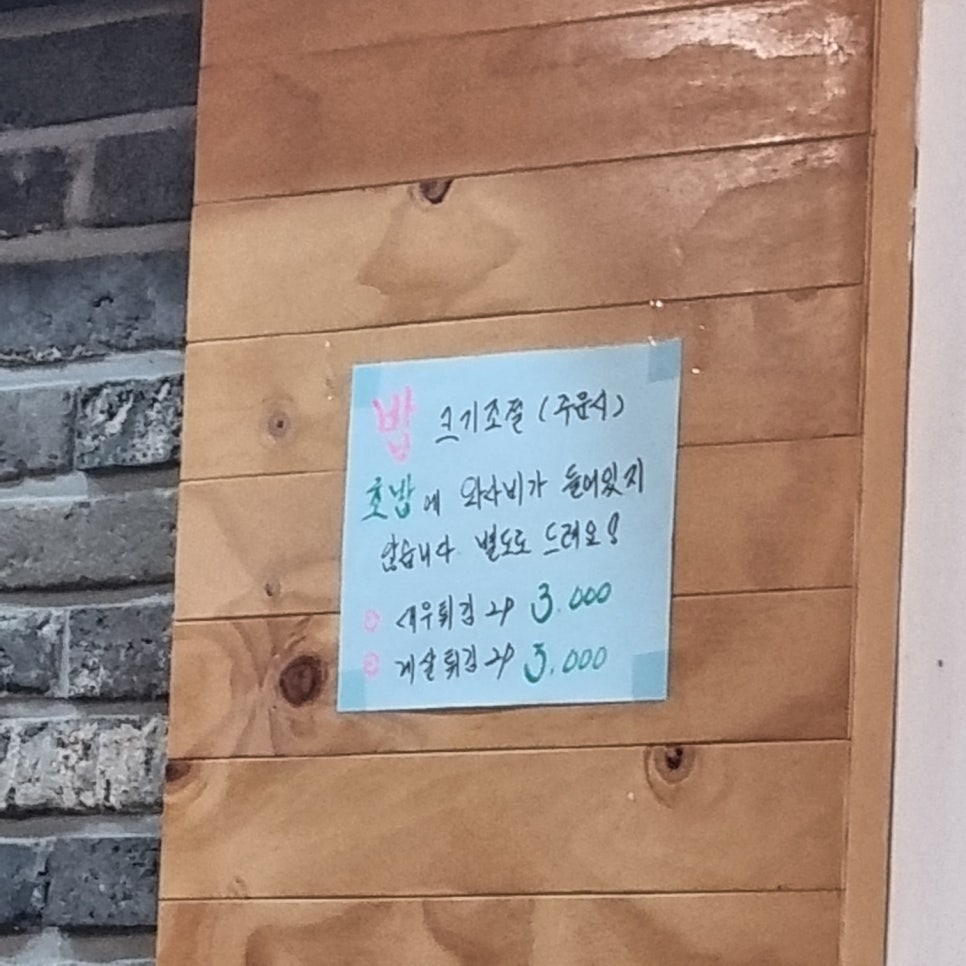 밥 크기조절 (주문시)
초밥에 와사비가 들어있지
않습니다. 별도로 드려요!
새우튀김 2P 3.000
게살튀김 2P 3.000